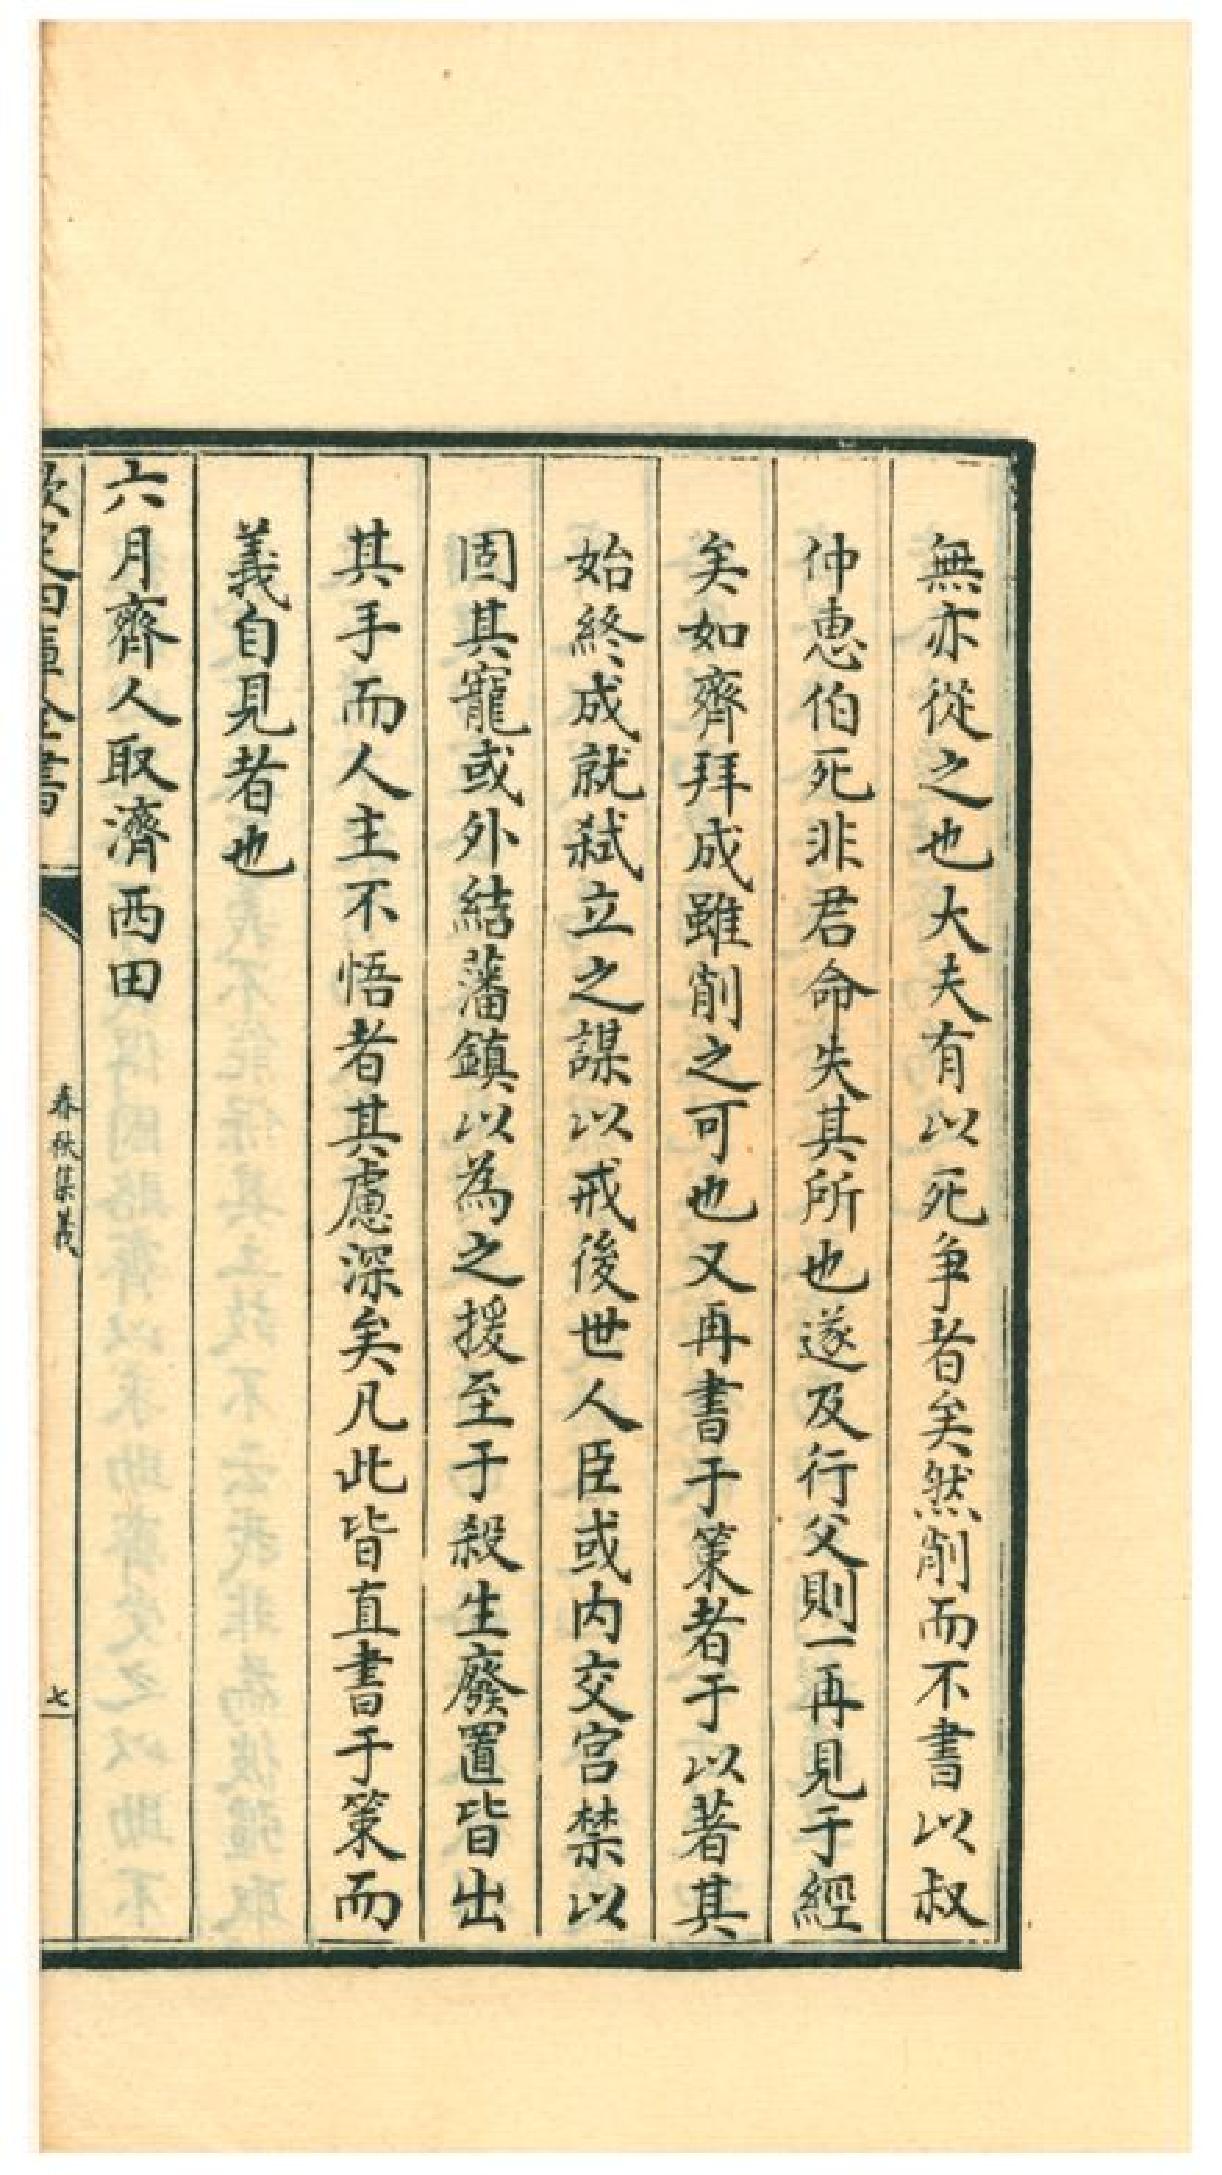 無亦從之也大夫有以死争者矣然削而不書以叔
仲恵伯死非君命失其所也遂及行父則一再見于經
矣如齊拜成雖削之可也又再書于策者于以著其
始終成就弑立之謀以戒後世人臣或内交宫禁以
固其寵或外結藩鎮以為之援至于殺生廢置皆出
其手而人主不悟者其慮深矣凡此皆直書于策而
義自見者也
六月齊人取濟西田
欽定四庫全書
春秋集義
七